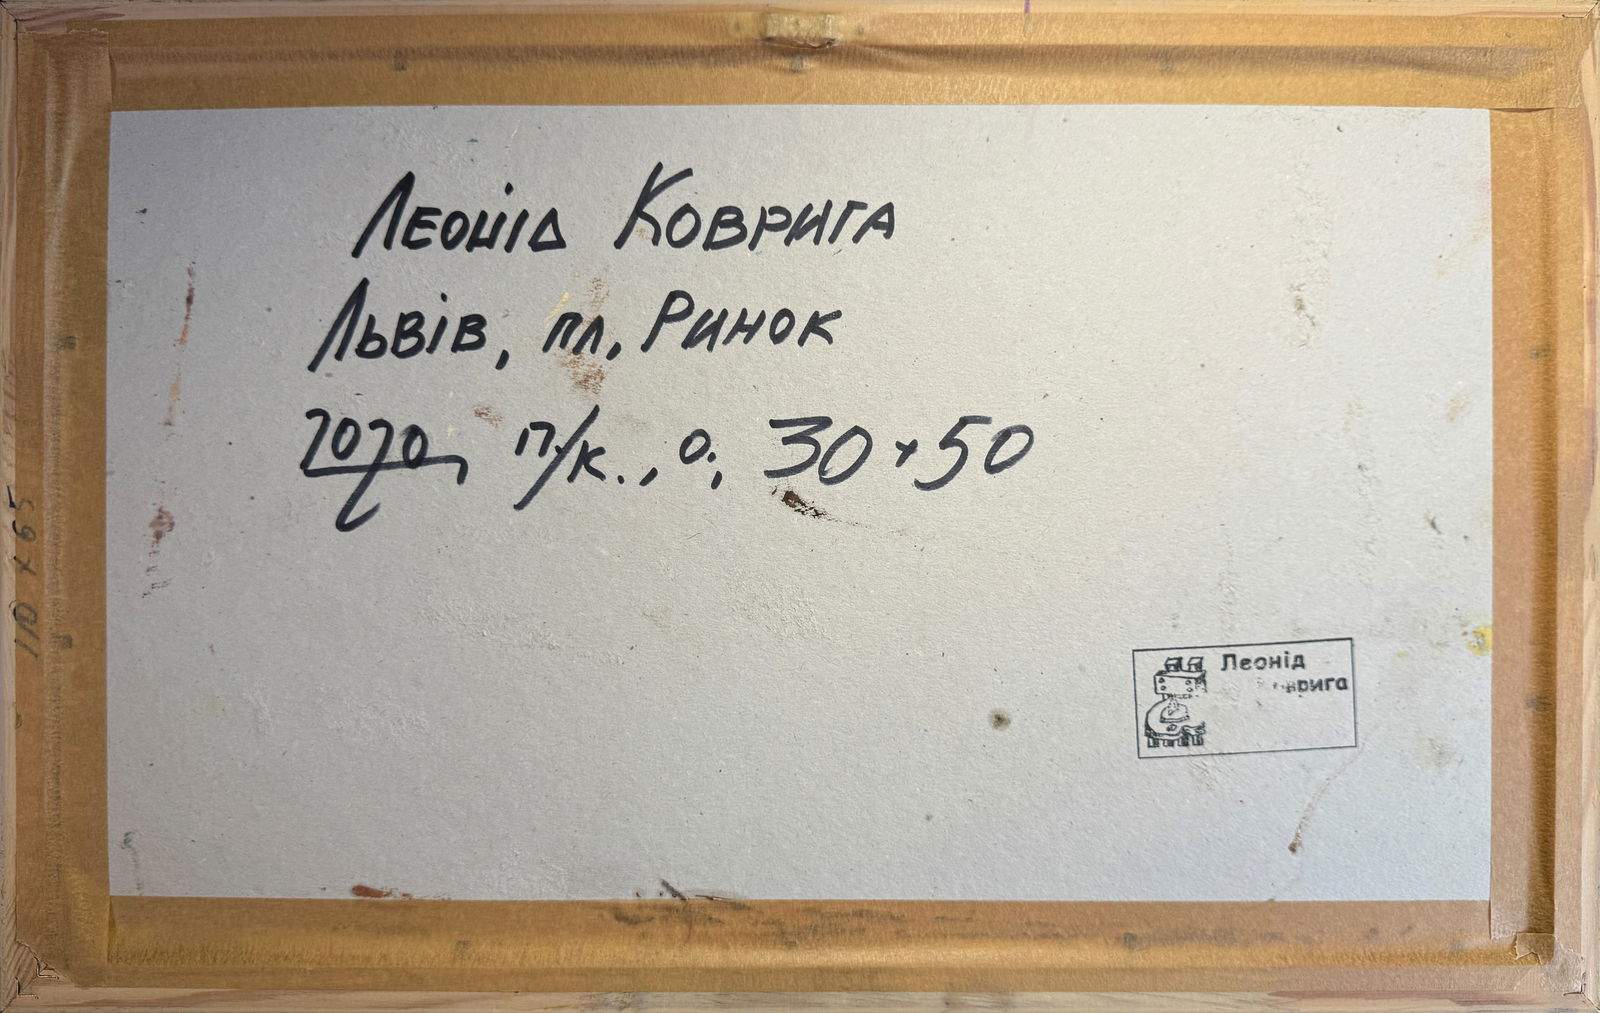 Леонід Коврига
Львів, пл. Ринок
2020, п/к., о., 30×50
Леонід
10 × 65